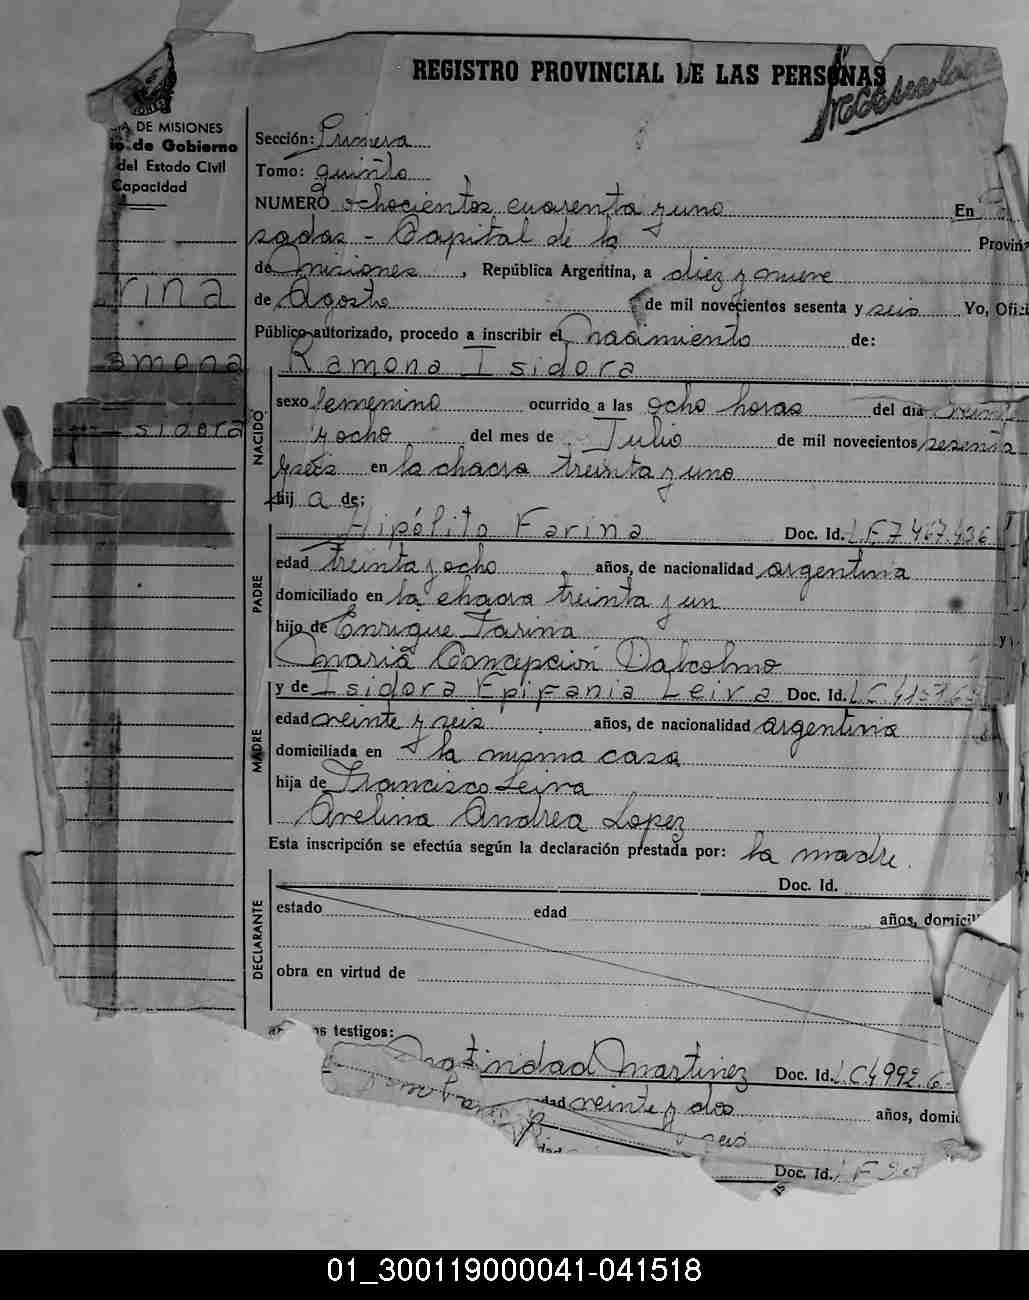 REGISTRO PROVINCIAL DE LAS PERSONAS
DE MISIONES
io de Gobierno
del Estado Civil
Capacidad
rina
amona
Isidora
Sección: Primera
Tomo: quinto
NUMERO ochocientos cuarenta y uno En
sadas - Capital de la Provin
de Misiones, República Argentina, a diez y nueve
de Agosto de mil novecientos sesenta y seis Yo, Ofici
Público autorizado, procedo a inscribir el nacimiento de:
Ramona Isidora
NACIDO
sexo femenino ocurrido a las ocho horas del día veinte
y ocho del mes de Julio de mil novecientos sesenta
y seis en la chacra treinta y uno
hij a de:
Hipólito Farina Doc. Id. L.E.7.467.436
PADRE
edad treinta y ocho años, de nacionalidad argentina
domiciliado en la chacra treinta y un
hijo de Enrique Farina y
Maria Concepción Dalcolmo
y de Isidora Epifania Leiva Doc. Id. L.C.
MADRE
edad veinte y seis años, de nacionalidad argentina
domiciliada en la misma casa
hija de Francisco Leiva y
Avelina Andrea Lopez
Esta inscripción se efectúa según la declaración prestada por: la madre.
Doc. Id.
DECLARANTE
estado edad años, domicil
obra en virtud de
os testigos:
Natividad Martinez Doc. Id. L.C.4.992.6
dad veinte y dos años, domic
seis
dad
Doc. Id. L.E.
01_300119000041-041518